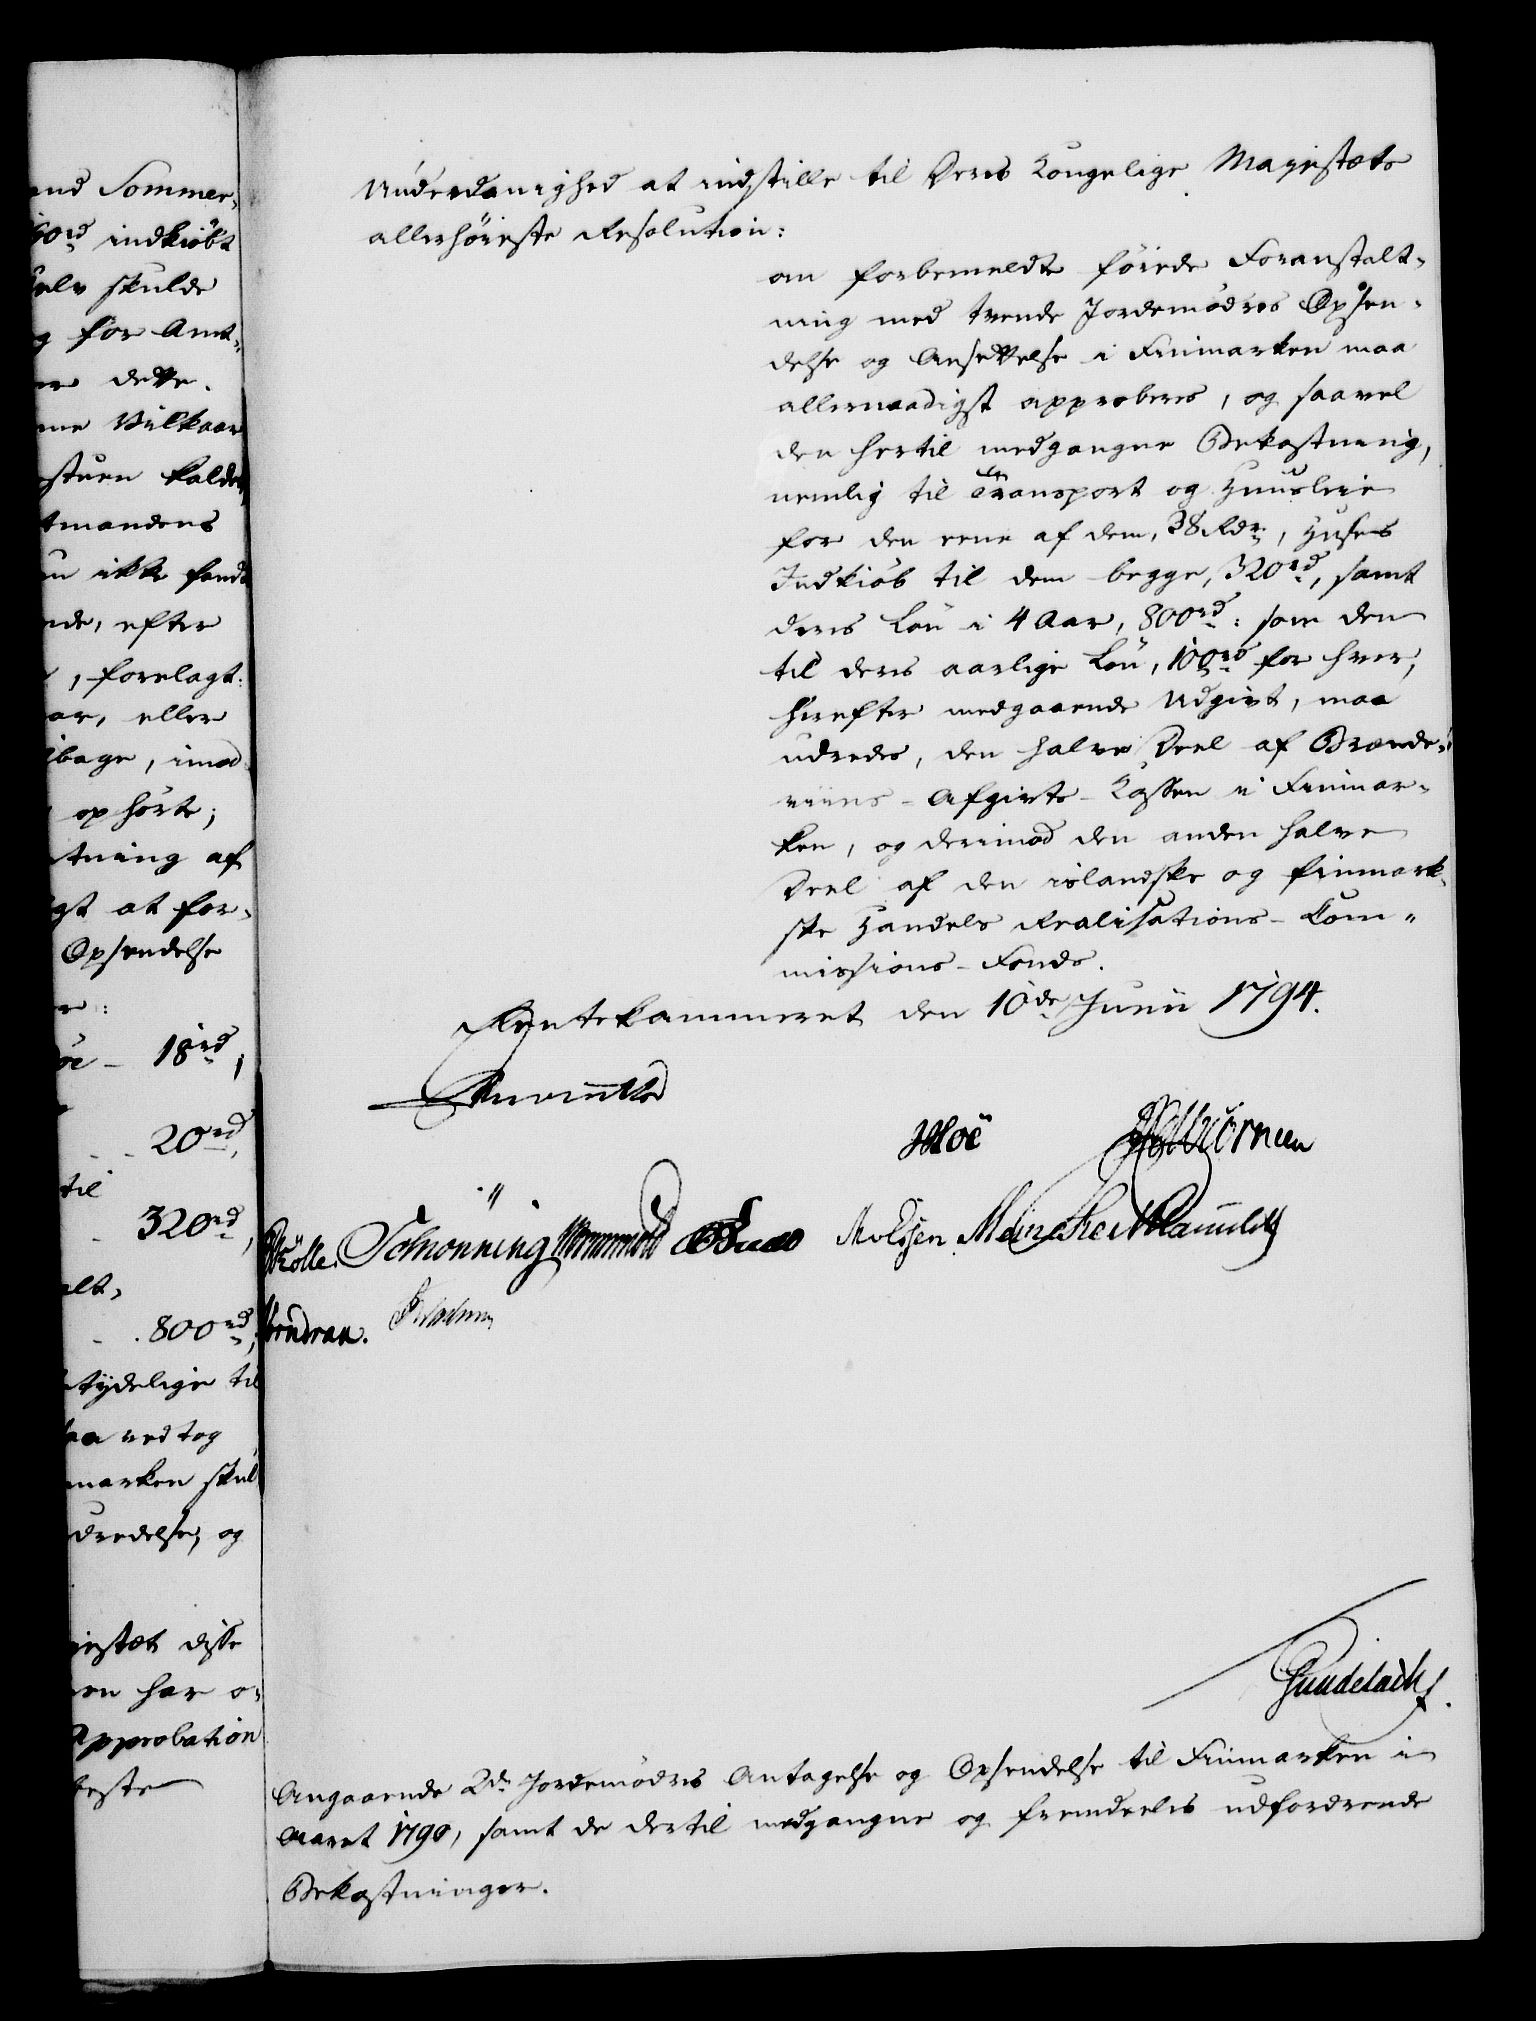 and Sommer-
60rd indkiöbt
selv skulde
g for Amt-
er dette.
me Vilkaar
stuen kaldet
tmandens
n ikke fandt
nde, efter
, forelagt:
ar, eller
lbage, imod
ophörte;
tning af
gt at for-
Opsendelse
er:
öe - 18rd,
20rd,
til
320rd,
alt,
800rd,
tydelige til
aa vedtog
marken skul
dredelse, og
jestæt disse
en har o-
Approbation
teste
Underdanighed at indstille til Deres Kongelige Majestæts
allerhöieste Resolution:
om forbemeldte föiede Foranstalt-
ning med tvende Jordemödres Opsen-
delse og Ansettelse i Finmarken maa
allernaadigst approberes, og saavel
den hertil medgangne Bekostning,
nemlig til Transport og Huusleie
for den eene af dem, 38 Rdr, Huses
Indkiöb til dem begge, 320rd, samt
deres Lön i 4 Aar, 800rd: som den
til deres aarlige Lön, 100rd for hver,
herefter medgaaende Udgivt, maa
udredes, den halve Deel af Brænde-
viins-Afgivts-Kassen i Finmar-
ken, og derimod den anden halve
Deel af den islandske og finmark-
ske Handels Realisations-Com-
missions-Fonds.
Rentekammeret den 10de Junii 1794.
Reventlow
Moe
Schönning Wormskiold Meincke
Gundelach
Angaaende 2de Jordemödres Antagelse og Opsendelse til Finmarken i
Aaret 1790, samt de dertil medgangne og fremdeeles udfordrende
Bekostninger.